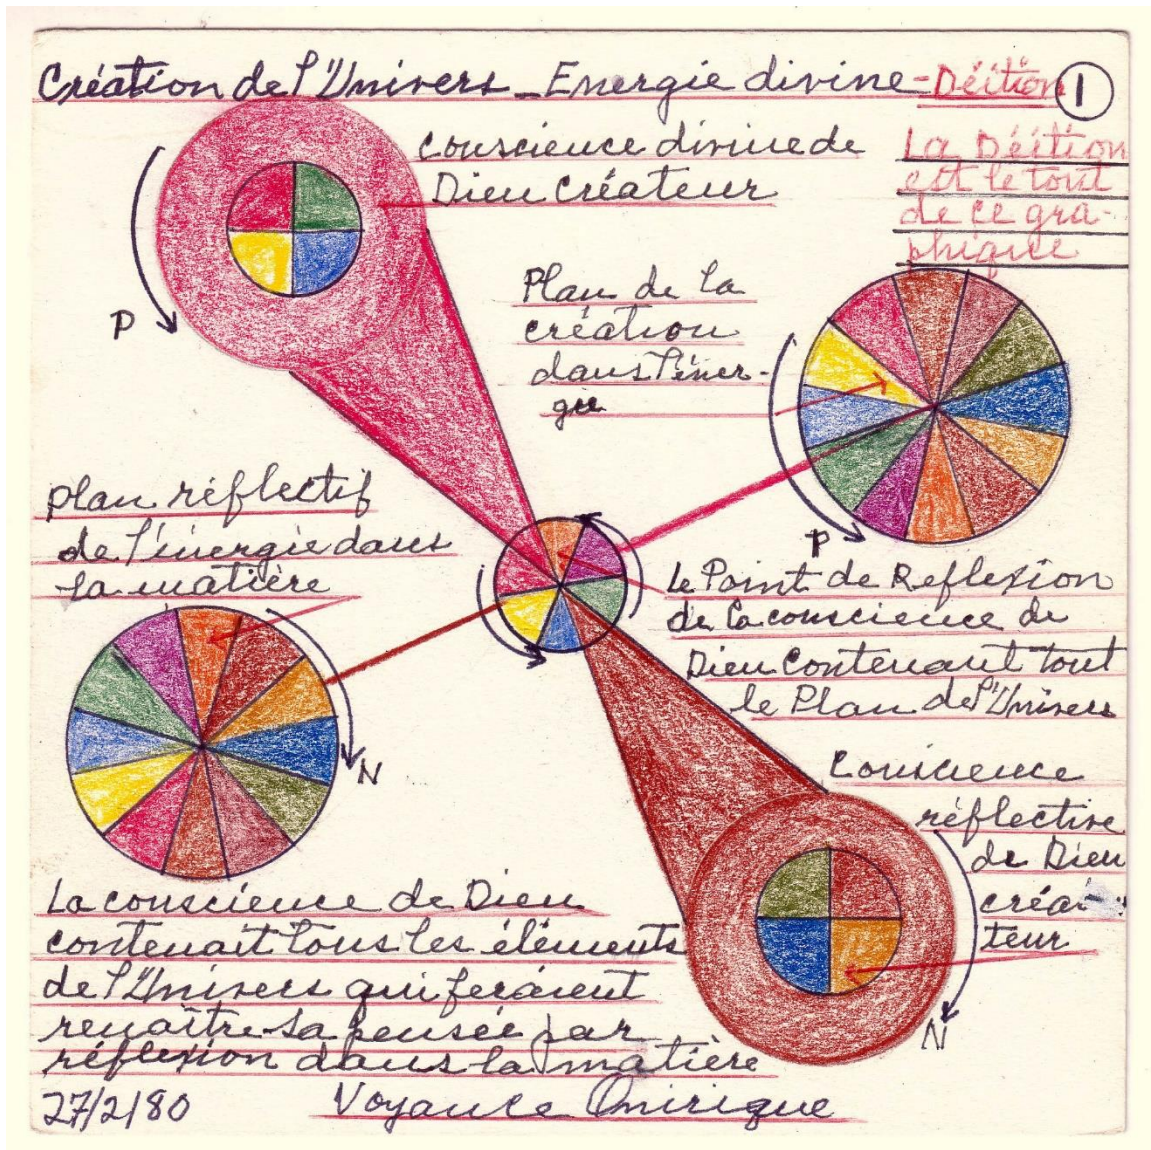 Création de l'Univers - Energie divine - Déition 1
conscience divine de
Dieu Créateur
La Déition
est le tout
de ce gra-
phique
P
Plan de la
création
dans l'éner-
gie
P
plan réflectif
de l'énergie dans
la matière
Le Point de Reflexion
de la conscience de
Dieu contenant tout
le Plan de l'Univers
N
Conscience
réflective
de Dieu
créa-
teur
N
La conscience de Dieu
contenait tous les éléments
de l'Univers qui feraient
renaître sa pensée par
réflexion dans la matière
27/2/80 Voyance Onirique